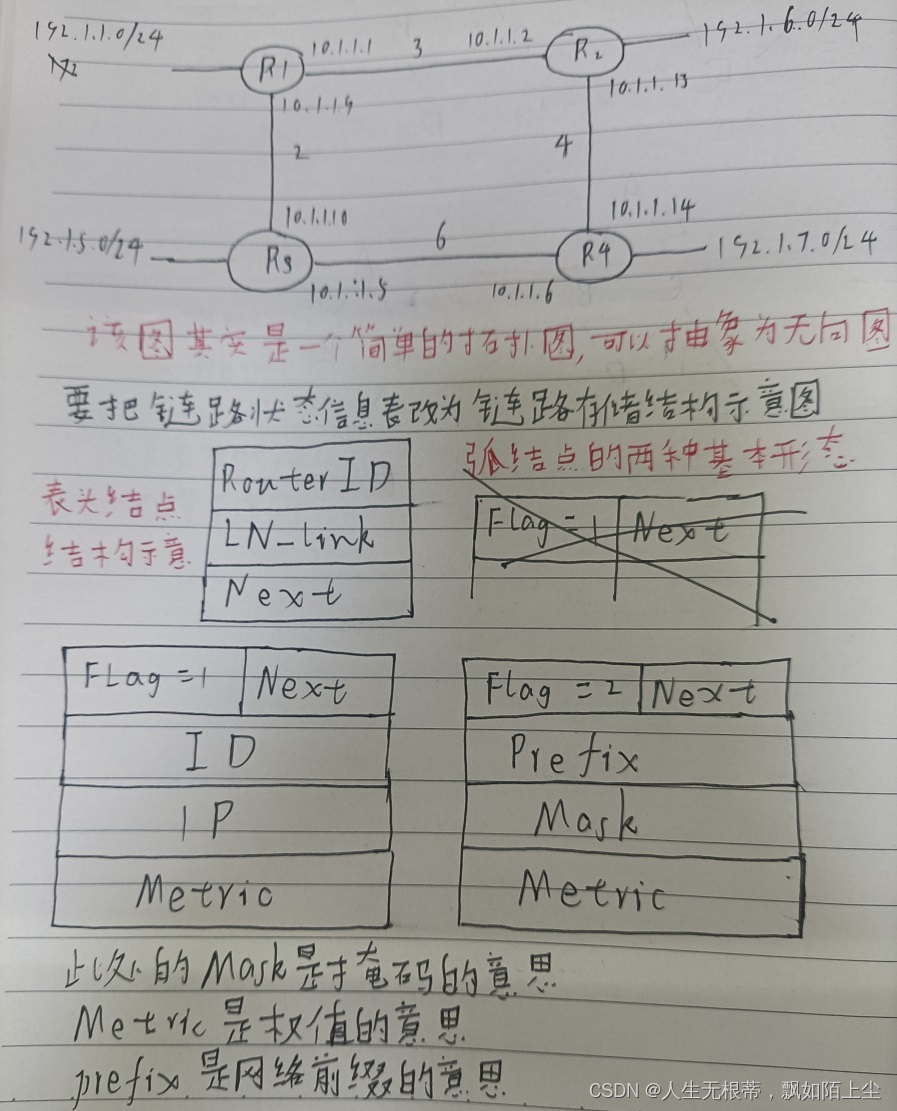 192.1.1.0/24
10.1.1.1 3 10.1.1.2
192.1.6.0/24
R1
R2
10.1.1.9
10.1.1.13
2
4
10.1.1.10
10.1.1.14
192.1.5.0/24
R3
6
R4
192.1.7.0/24
10.1.1.5
10.1.1.6
该图其实是一个简单的拓扑图,可以抽象为无向图
要把链路状态信息表改为链路存储结构示意图
表头结点
结构示意
RouterID
LN-link
Next
弧结点的两种基本形态
Flag=1 Next
Flag=1 Next
ID
IP
Metric
Flag=2 Next
Prefix
Mask
Metric
此处的Mask是掩码的意思
Metric是权值的意思
prefix是网络前缀的意思
CSDN @人生无根蒂，飘如陌上尘